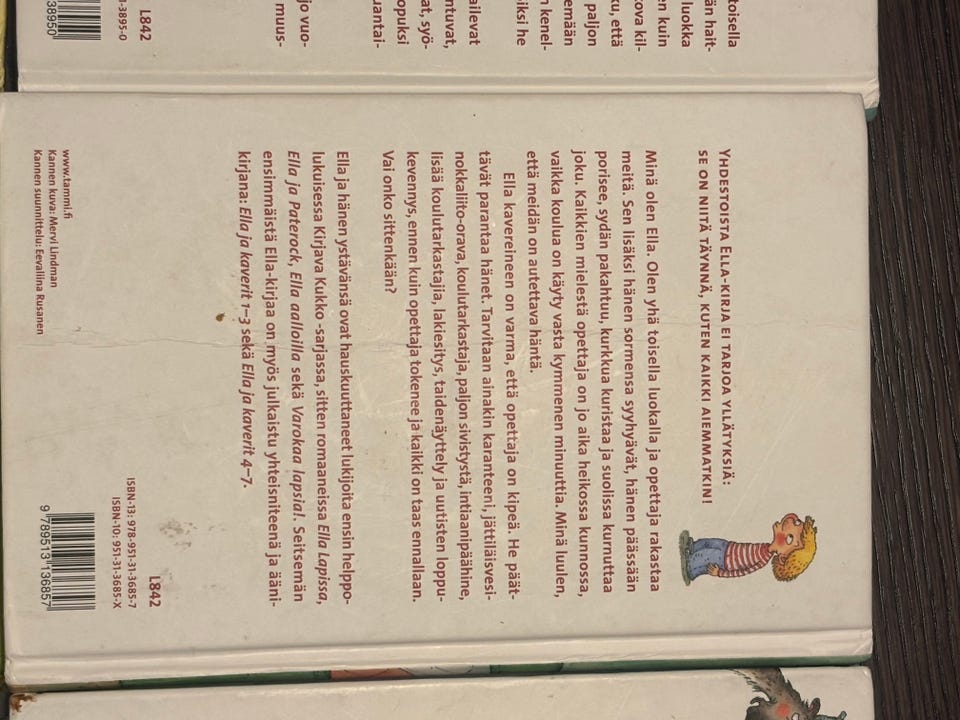 toisella
än hait-
luokka
en kuin
kova kil-
ku, että
paljon
emään
n kenel-
iksi he
ailevat
ntuvat,
at, syö-
opuksi
uantai-
jo vuo-
muus-
L842
-3895-0
38950
YHDESTOISTA ELLA-KIRJA EI TARJOA YLLÄTYKSIÄ:
SE ON NIITÄ TÄYNNÄ, KUTEN KAIKKI AIEMMATKIN!
Minä olen Ella. Olen yhä toisella luokalla ja opettaja rakastaa
meitä. Sen lisäksi hänen sormensa syyhyävät, hänen päässään
porisee, sydän pakahtuu, kurkkua kuristaa ja suolissa kurnuttaa
joku. Kaikkien mielestä opettaja on jo aika heikossa kunnossa,
vaikka koulua on käyty vasta kymmenen minuuttia. Minä luulen,
että meidän on autettava häntä.
Ella kavereineen on varma, että opettaja on kipeä. He päät-
tävät parantaa hänet. Tarvitaan ainakin karanteeni, jättiläisvesi-
nokkaliito-orava, koulutarkastaja, paljon sivistystä, intiaanipäähine,
lisää koulutarkastajia, lakiesitys, taidenäyttely ja uutisten loppu-
kevennys, ennen kuin opettaja tokenee ja kaikki on taas ennallaan.
Vai onko sittenkään?
Ella ja hänen ystävänsä ovat hauskuuttaneet lukijoita ensin helppo-
lukuisessa Kirjava Kukko -sarjassa, sitten romaaneissa Ella Lapissa,
Ella ja Paterock, Ella aalloilla sekä Varokaa lapsia!. Seitsemän
ensimmäistä Ella-kirjaa on myös julkaistu yhteisniteenä ja ääni-
kirjana: Ella ja kaverit 1–3 sekä Ella ja kaverit 4–7.
www.tammi.fi
Kannen kuva: Mervi Lindman
Kannen suunnittelu: Eevaliina Rusanen
L842
ISBN-13: 978-951-31-3685-7
ISBN-10: 951-31-3685-X
9 789513 136857